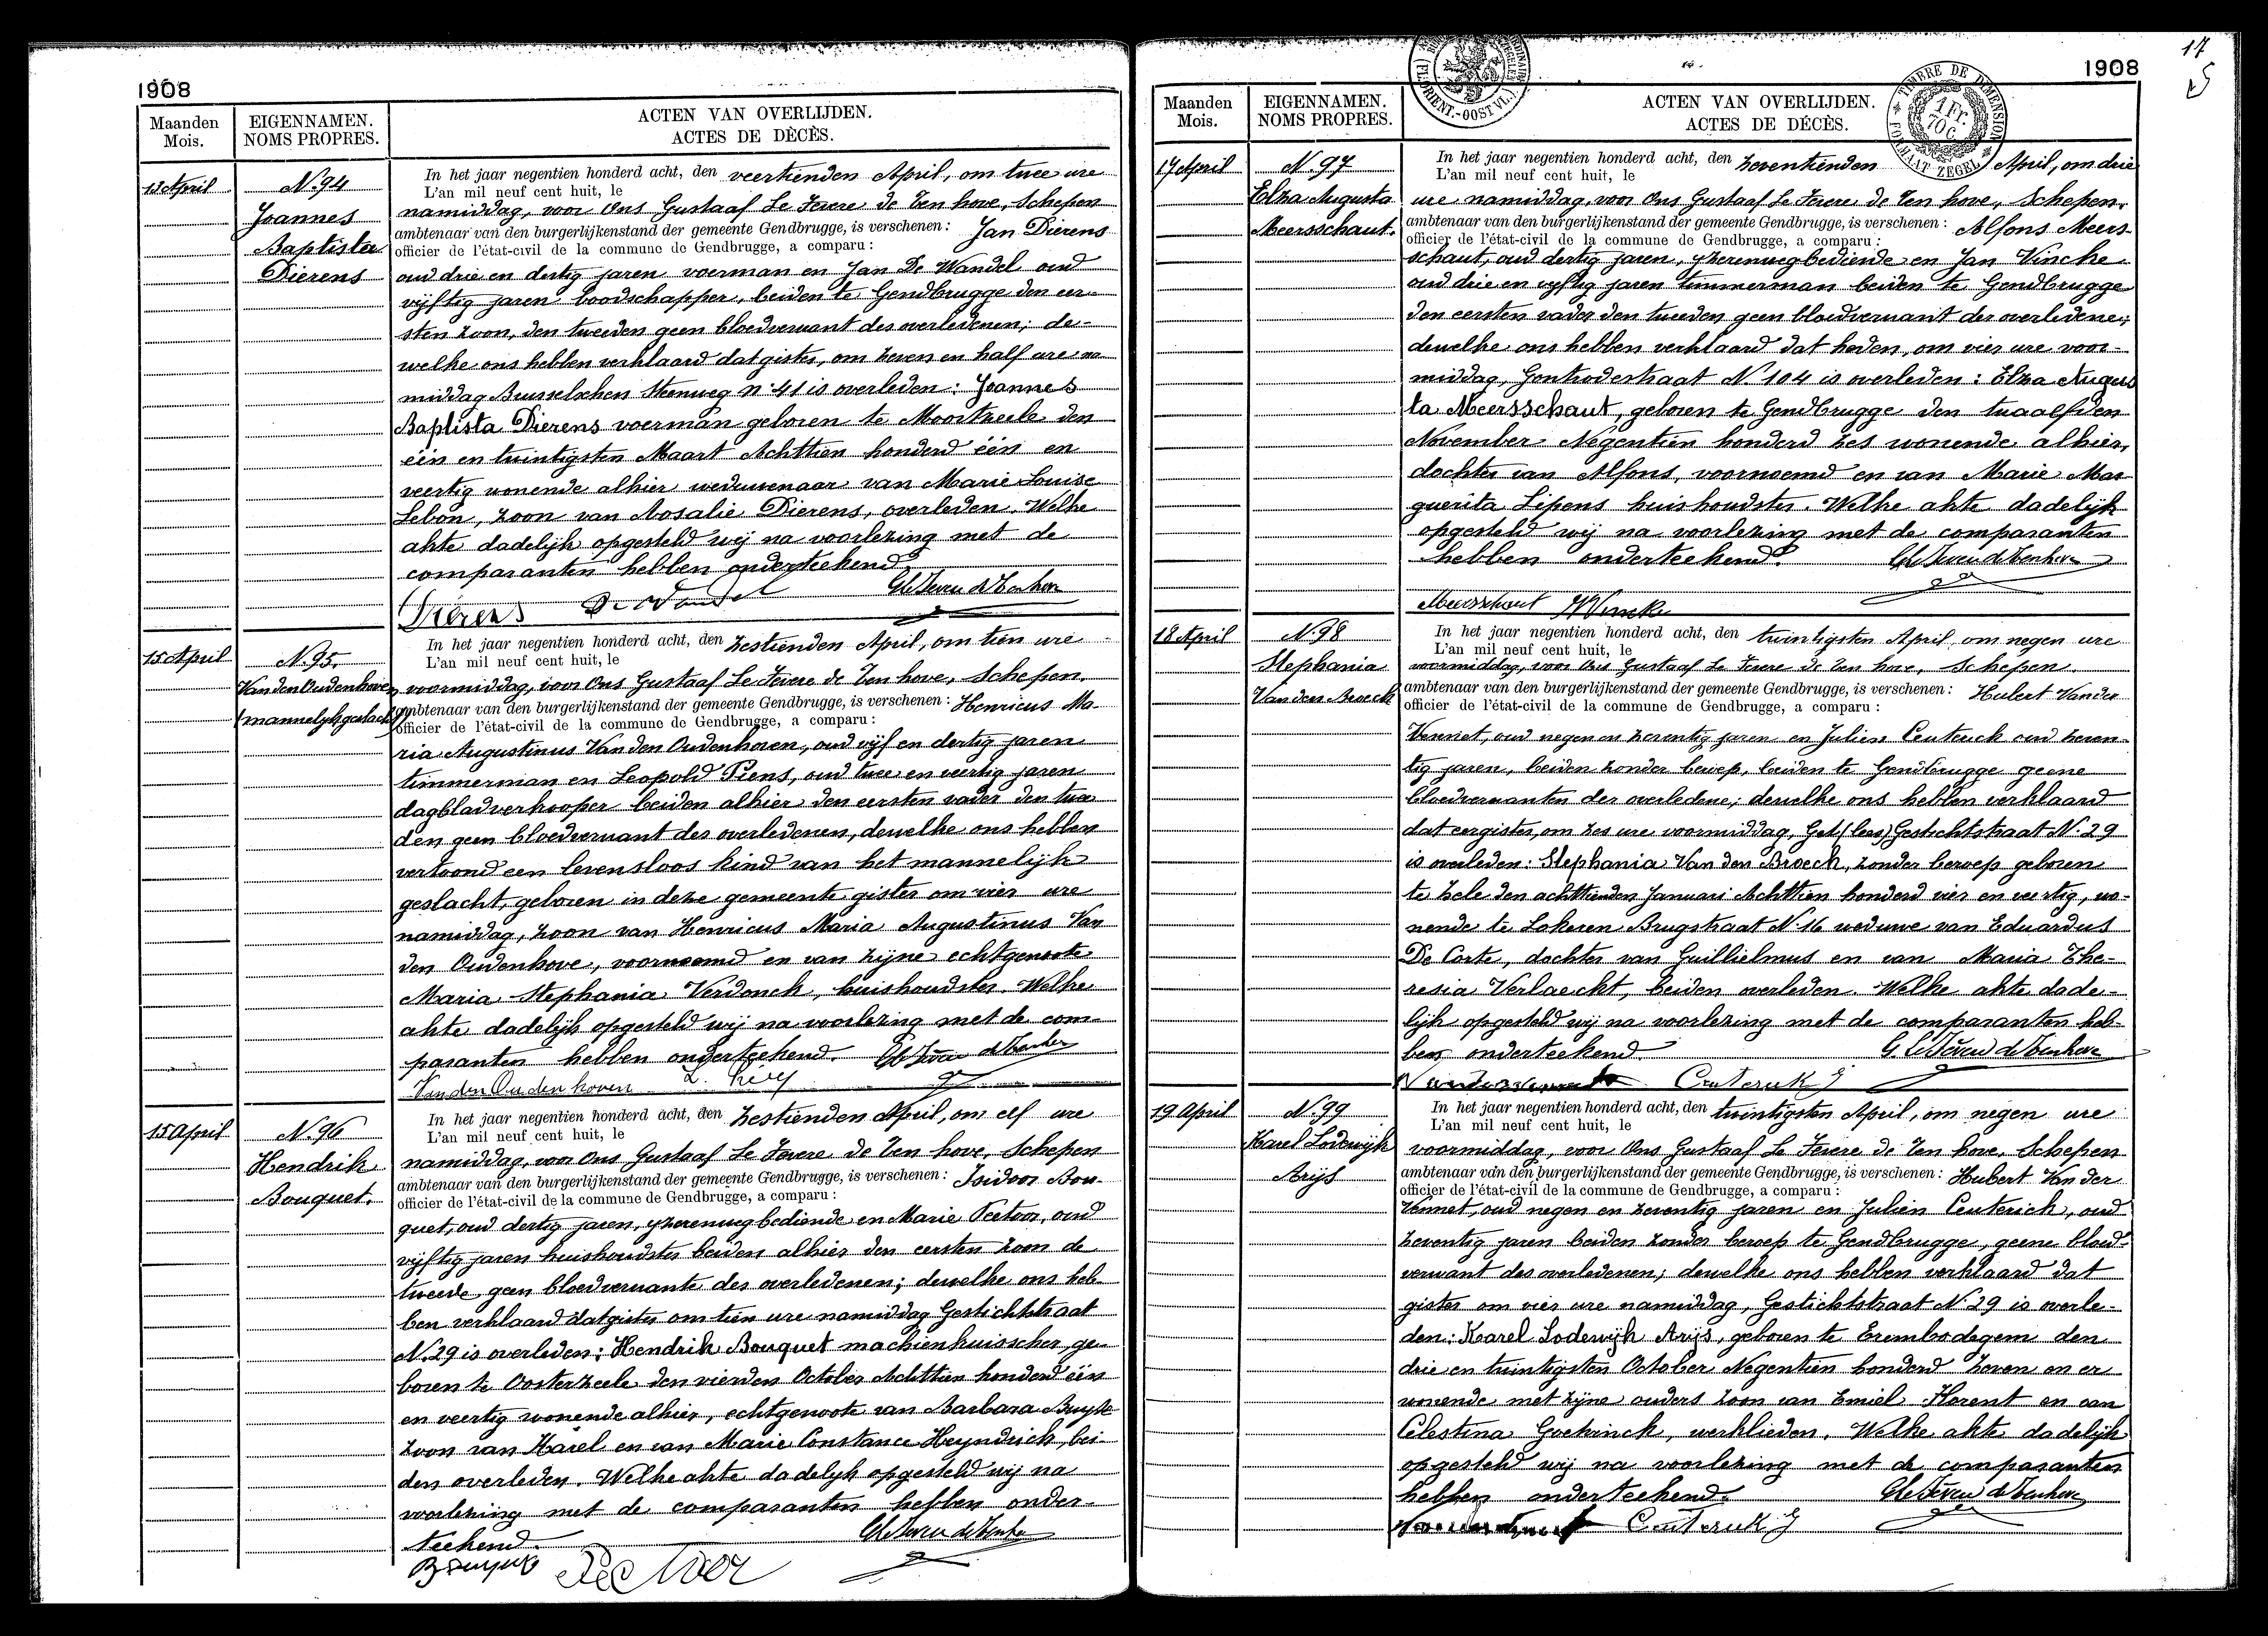 1908
Maanden
Mois.
EIGENNAMEN.
NOMS PROPRES.
ACTEN VAN OVERLIJDEN.
ACTES DE DÉCÈS.
13 April
N. 94
Joannes
Baptista
Dierens
In het jaar negentien honderd acht, den veertienden April, om twee ure
L'an mil neuf cent huit, le
namiddag, voor Ons Gustaaf Le Fevere de Ten hove, Schepen
ambtenaar van den burgerlijkenstand der gemeente Gendbrugge, is verschenen: Jan Dierens
officier de l'état-civil de la commune de Gendbrugge, a comparu:
oud drie en dertig jaren voerman en Jan De Wandel oud
vijftig jaren boodschapper, beiden te Gendbrugge den eer-
sten zoon, den tweeden geen bloedverwant des overledenen; de-
welke ons hebben verklaard dat gister, om zeven en half ure na
middag Brusselschen Steenweg N. 41 is overleden: Joannes
Baptista Dierens voerman geboren te Moortzeele den
één en twintigsten Maart Achttien honderd één en
veertig wonende alhier weduwenaar van Marie Louise
Lebon, zoon van Rosalie Dierens, overleden. Welke
akte dadelijk opgesteld wij na voorlezing met de
comparanten hebben onderteekend.
Dierens De Wandel
15 April
N. 95.
Van den Oudenhoven
(mannelijk geslacht)
In het jaar negentien honderd acht, den zestienden April, om tien ure
L'an mil neuf cent huit, le
voormiddag, voor Ons Gustaaf Le Fevere de Ten hove, Schepen.
ambtenaar van den burgerlijkenstand der gemeente Gendbrugge, is verschenen: Henricus Ma-
officier de l'état-civil de la commune de Gendbrugge, a comparu:
ria Augustinus Van den Oudenhoven, oud vijf en dertig jaren
timmerman en Leopold Piens, oud twee en veertig jaren
dagbladverkooper beiden alhier den eersten vader den twee
den geen bloedverwant des overledenen, dewelke ons hebben
vertoond een levensloos kind van het mannelijk
geslacht, geboren in deze gemeente gister om vier ure
namiddag, zoon van Henricus Maria Augustinus Van
den Oudenhove, voornoemd en van zijne echtgenoote
Maria Stephania Verdonck, huishoudster. Welke
akte dadelijk opgesteld wij na voorlezing met de com-
paranten hebben onderteekend.
Van den Oudenhoven
15 April
N. 96
Hendrik
Bouquet.
In het jaar negentien honderd acht, den zestienden April, om elf ure
L'an mil neuf cent huit, le
namiddag, voor Ons Gustaaf Le Fevere de Ten hove, Schepen
ambtenaar van den burgerlijkenstand der gemeente Gendbrugge, is verschenen: Isidoor Bou-
officier de l'état-civil de la commune de Gendbrugge, a comparu:
quet, oud dertig jaren, yzerenwegbediende en Marie Peetoor, oud
vijftig jaren huishoudster beiden alhier den eersten zoon de
tweede geen bloedverwante des overledenen; dewelke ons heb-
ben verklaard dat gister om tien ure namiddag Gestichtstraat
N. 29 is overleden: Hendrik Bouquet machienkuisscher, ge-
boren te Oosterzeele den vierden October Achttien honderd één
en veertig wonende alhier, echtgenoote van Barbara Buysse
zoon van Karel en van Marie Constance Heyndrick, bei-
den overleden. Welke akte dadelyk opgesteld wij na
voorlezing met de comparanten hebben onder-
teekend.
17
1908
Maanden
Mois.
EIGENNAMEN.
NOMS PROPRES.
ACTEN VAN OVERLIJDEN.
ACTES DE DÉCÈS.
(FL. ORIENT.-OOST VL.)
TIMBRE DE DIMENSION
1 Fr.
70 C.
FORMAAT ZEGEL
17 April
N. 97
Elza Augusta
Meersschaut.
In het jaar negentien honderd acht, den zeventienden April, om drie
L'an mil neuf cent huit, le
ure namiddag, voor Ons Gustaaf Le Fevere de Ten hove, Schepen,
ambtenaar van den burgerlijkenstand der gemeente Gendbrugge, is verschenen: Alfons Meers-
officier de l'état-civil de la commune de Gendbrugge, a comparu:
schaut, oud dertig jaren, yzerenwegbediende en Jan Vincke
oud drie en vyftig jaren timmerman beiden te Gendbrugge
den eersten vader den tweeden geen bloedverwant der overledene;
dewelke ons hebben verklaard dat heden, om vier ure voor-
middag, Gontrodestraat N. 104 is overleden: Elza Augus
ta Meersschaut, geboren te Gendbrugge den twaalfden
November Negentien honderd zes wonende alhier,
dochter van Alfons, voornoemd en van Marie Mar
guerita Lipens huishoudster. Welke akte dadelijk
opgesteld wij na voorlezing met de comparanten
hebben onderteekend.
Meersschaut Vincke
18 April
N. 98
Stephania
Van den Broeck
In het jaar negentien honderd acht, den twintigsten April, om negen ure
L'an mil neuf cent huit, le
voormiddag, voor Ons Gustaaf Le Fevere de Ten hove, Schepen.
ambtenaar van den burgerlijkenstand der gemeente Gendbrugge, is verschenen: Hubert Vander
officier de l'état-civil de la commune de Gendbrugge, a comparu:
Vennet, oud negen en zeventig jaren en Julien Ceuterick oud zeven-
tig jaren, beiden zonder beroep, beiden te Gendbrugge geene
bloedverwanten der overledene; dewelke ons hebben verklaard
dat eergister, om zes ure voormiddag, Get (lees) Gestichtstraat N. 29
is overleden: Stephania Van den Broeck, zonder beroep geboren
te Zele den achttienden Januari Achttien honderd vier en veertig, wo-
nende te Lokeren Brugstraat N. 16 weduwe van Eduardus
De Corte, dochter van Guillielmus en van Maria The-
resia Verlaeckt, beiden overleden. Welke akte dade-
lijk opgesteld wij na voorlezing met de comparanten heb-
ben onderteekend
19 April
N. 99
Karel Lodewijk
Arijs
In het jaar negentien honderd acht, den twintigsten April, om negen ure
L'an mil neuf cent huit, le
voormiddag, voor Ons Gustaaf Le Fevere de Ten hove, Schepen
ambtenaar van den burgerlijkenstand der gemeente Gendbrugge, is verschenen: Hubert Van der
officier de l'état-civil de la commune de Gendbrugge, a comparu:
Vennet, oud negen en zeventig jaren en Julien Ceuterick, oud
zeventig jaren beiden zonder beroep te Gendbrugge, geene bloed-
verwant des overledenen; dewelke ons hebben verklaard dat
gister om vier ure namiddag, Gestichtstraat N. 29 is overle-
den: Karel Lodewijk Arijs, geboren te Erembodegem den
drie en twintigsten October Negentien honderd zeven en er
wonende met zijne ouders zoon van Emiel Florent en van
Celestina Goekinck, werklieden. Welke akte dadelijk
opgesteld wij na voorlezing met de comparanten
hebben onderteekend.